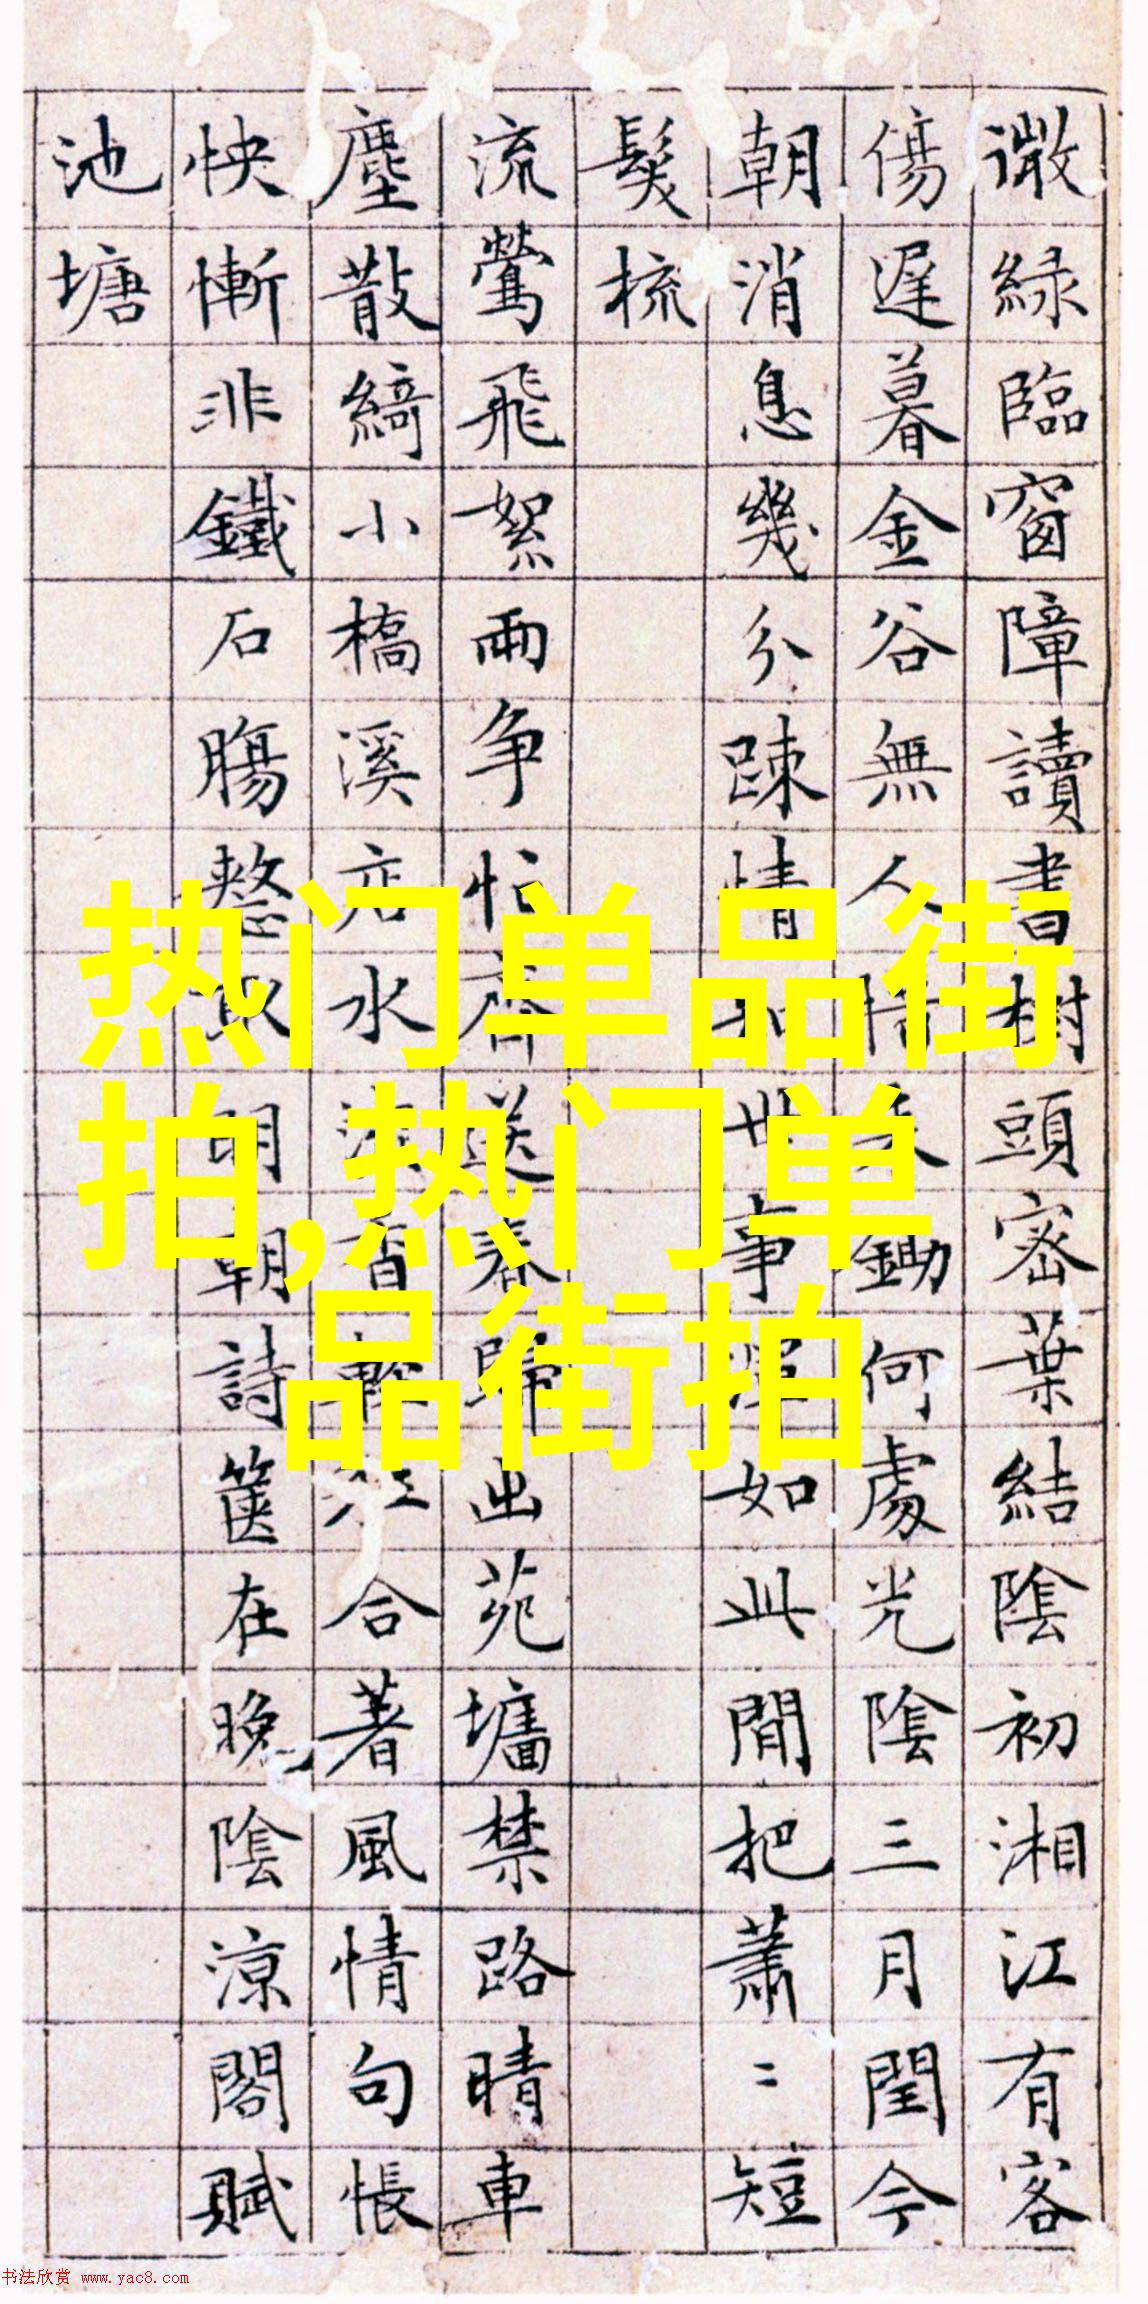 微綠臨窗障讀書樹頭密葉結陰初湘江有客
傷遲暮金谷無人鋤何處光陰三月閏今
朝消息幾分疎情世事如此間把蕭〻短
鬢梳
流鶯飛絮兩争忙齊送春歸出苑墻禁路晴車
塵散綺小橋溪店水香合著風情句悵
怏慚非鐵石腸取明朝詩篋在晚陰涼閣賦
池塘
热门单品街
拍,热门单
品街拍
书法欣赏 www.yac8.com